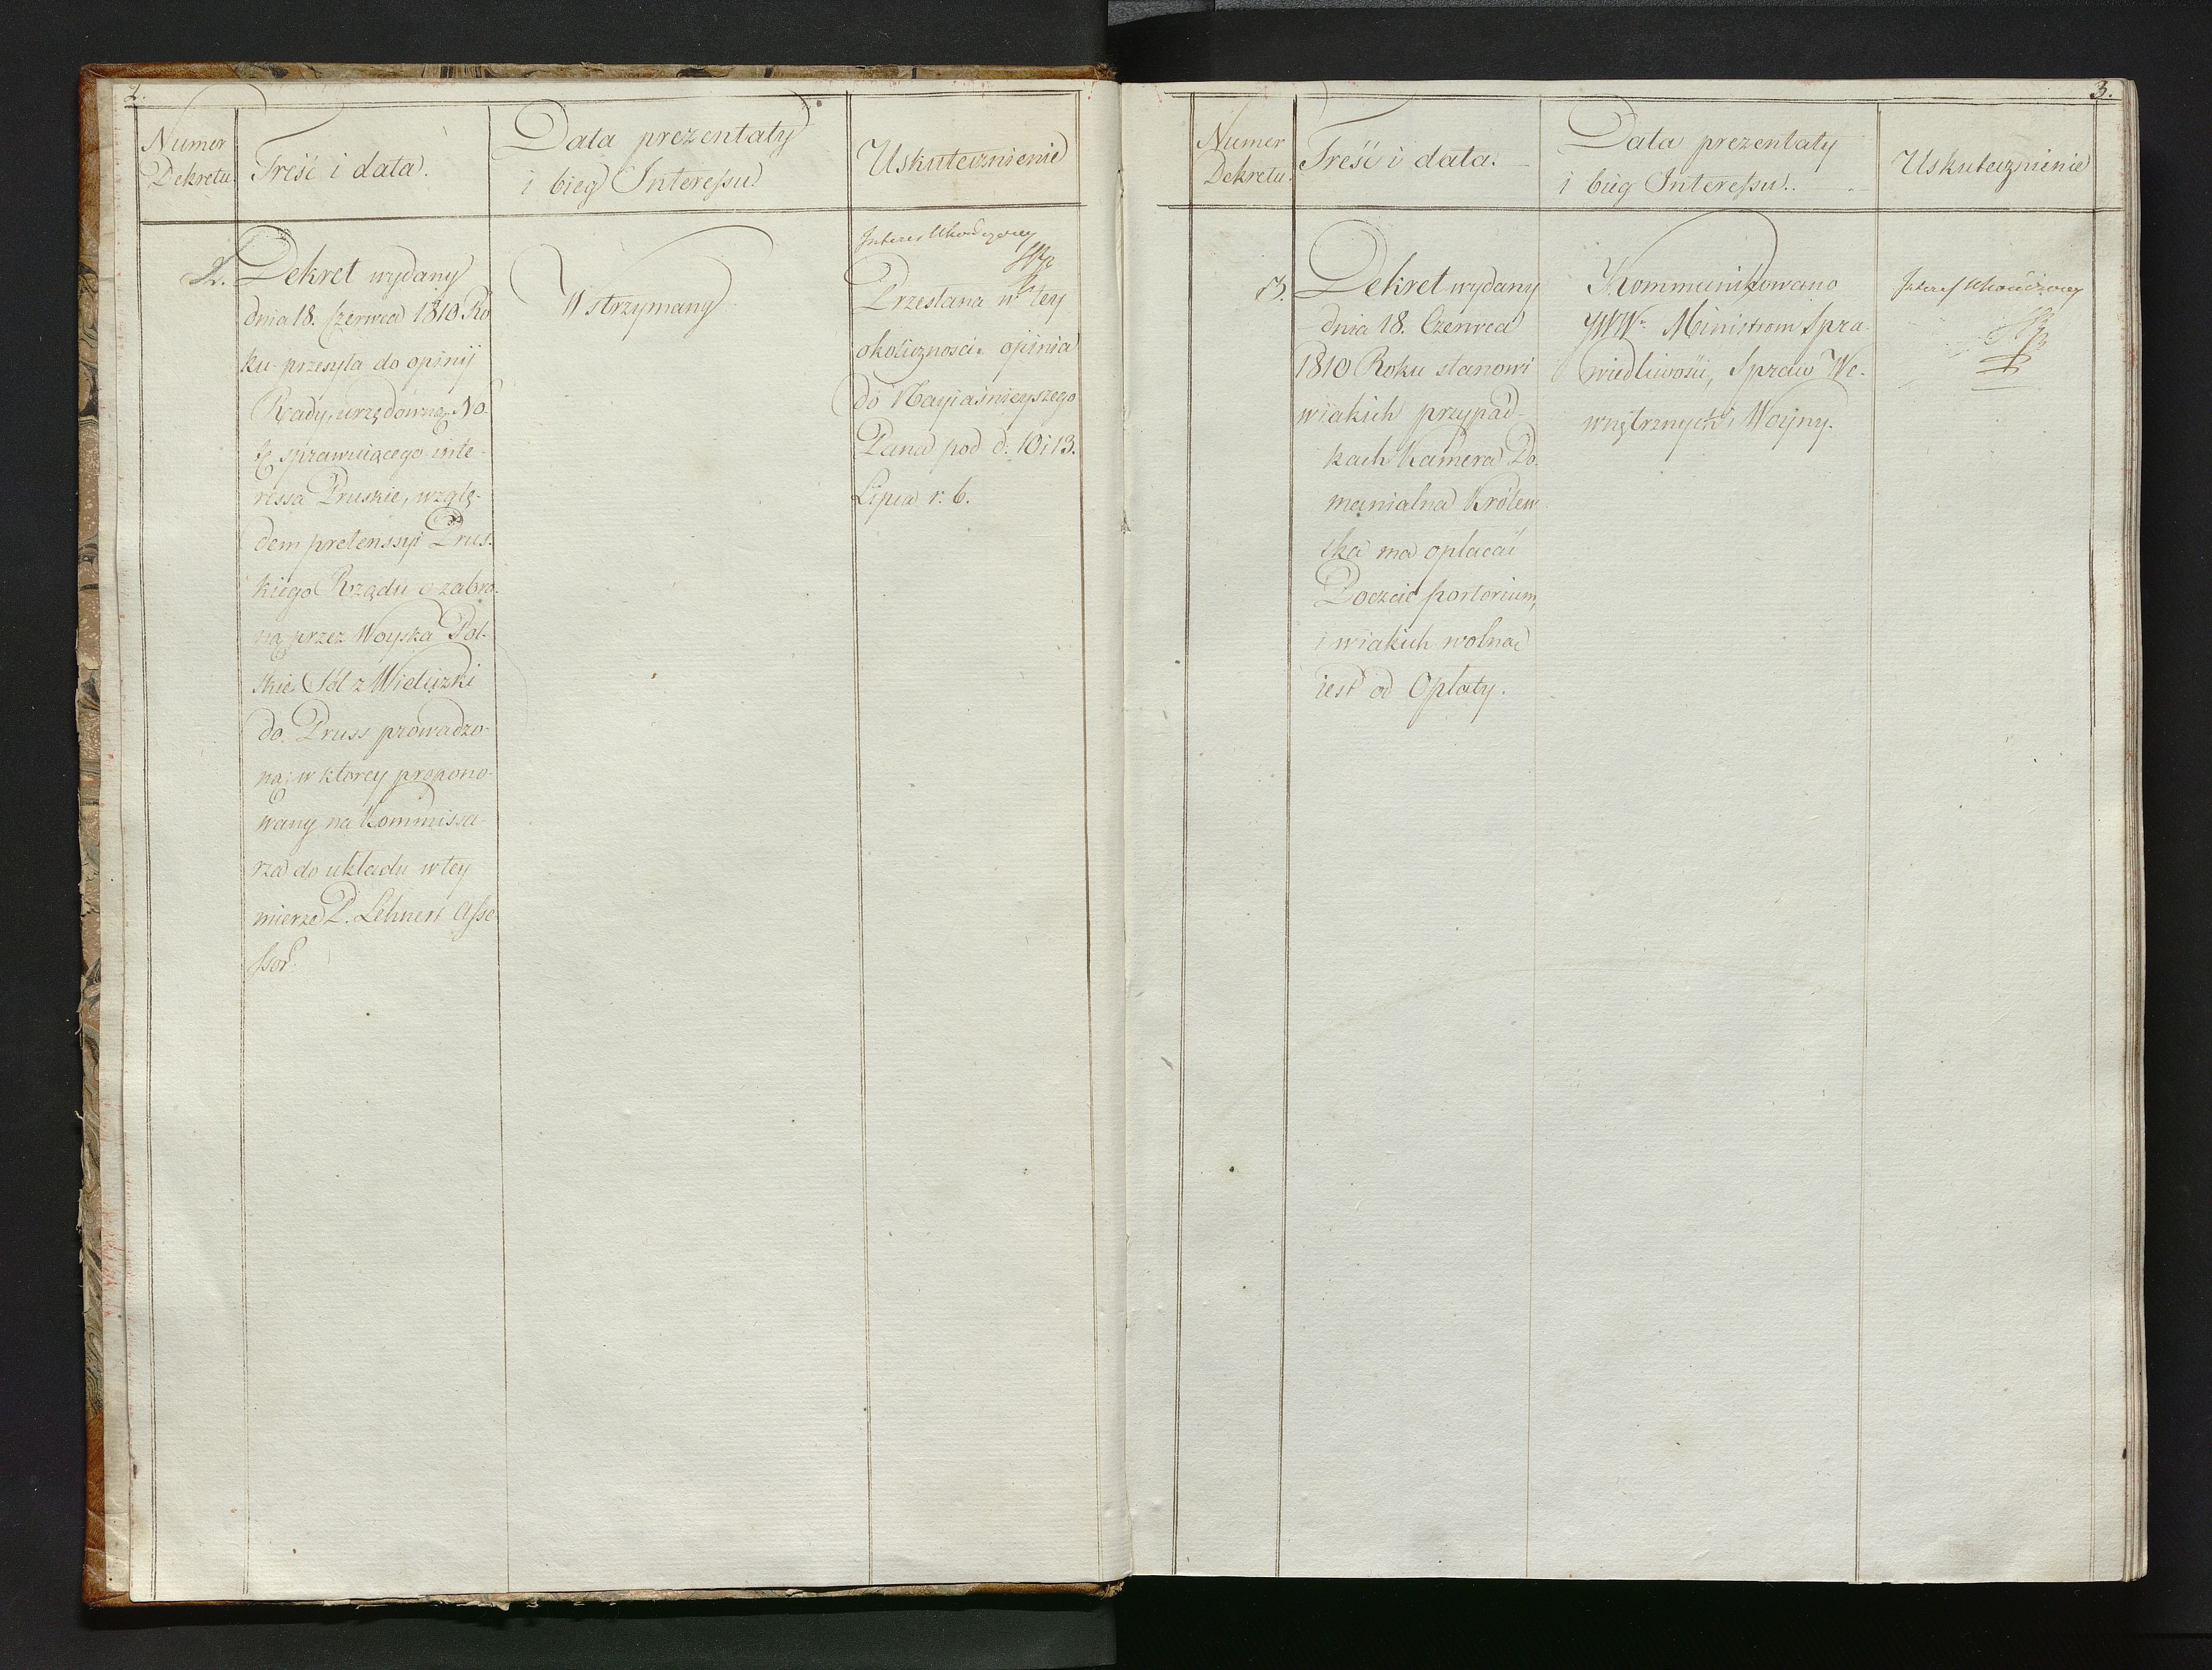 2.
Numer
Dekretu
Treść i data.
Data prezentaty
i bieg Interessu
Uskutecznienie
2.
Dekret wydany
dnia 18. Czerwca 1810. Ro
ku przesyła do opinij
Rady, urzędowną No-
tę sprawuiącego inte-
ressa Pruskie, wzglę-
dem pretenssyi Prus-
kiego Rządu o zabra-
ną przez Woyska Pol-
skie Sól z Wieliczki
do Pruss prowadzo-
ną; w ktorey propono-
wany na Kommissa
rza do układu w tey
mierze P. Lehnert Asse-
ssor.
Wstrzymany
Interes Ukończony
Przesłana w tey
okoliczności opinia
do Nayiaśnieyszego
Pana pod d. 10 i 13.
Lipca r. b.
3.
Numer
Dekretu
Treść i data.
Data prezentaty
i bieg Interessu.
Uskutecznienie
3.
Dekret wydany
dnia 18. Czerwca
1810 Roku stanowi
w iakich przypad-
kach Kamera Do-
manialna Królew-
ska ma opłacać
Poczcie portorium,
i w iakich wolna
iest od Opłaty.
Kommunikowano
JWW. Ministrom Spra-
wiedliwości, Spraw We-
wnętrznych i Woyny.
Interes Ukończony